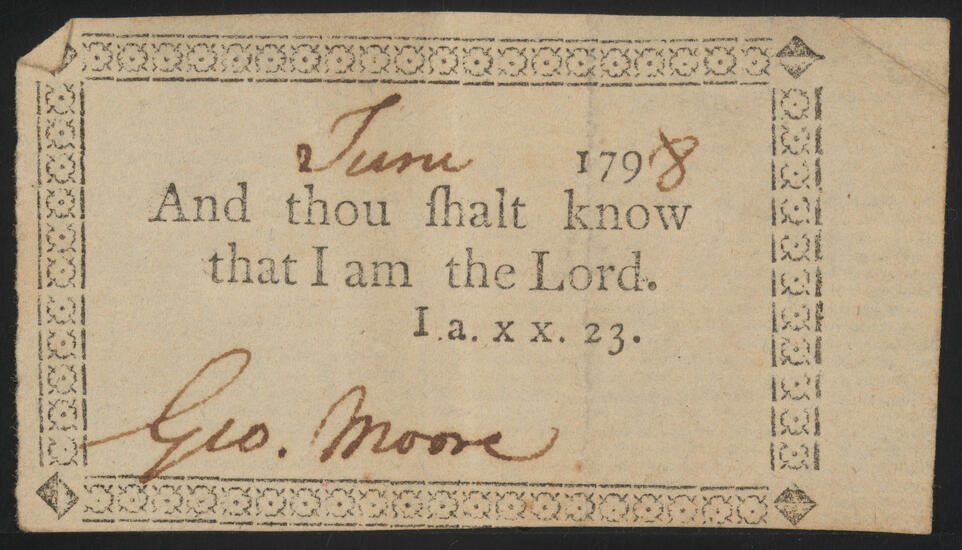 June 1798
And thou ſhalt know
that I am the Lord.
I.a. x x. 23.
Geo. Moore